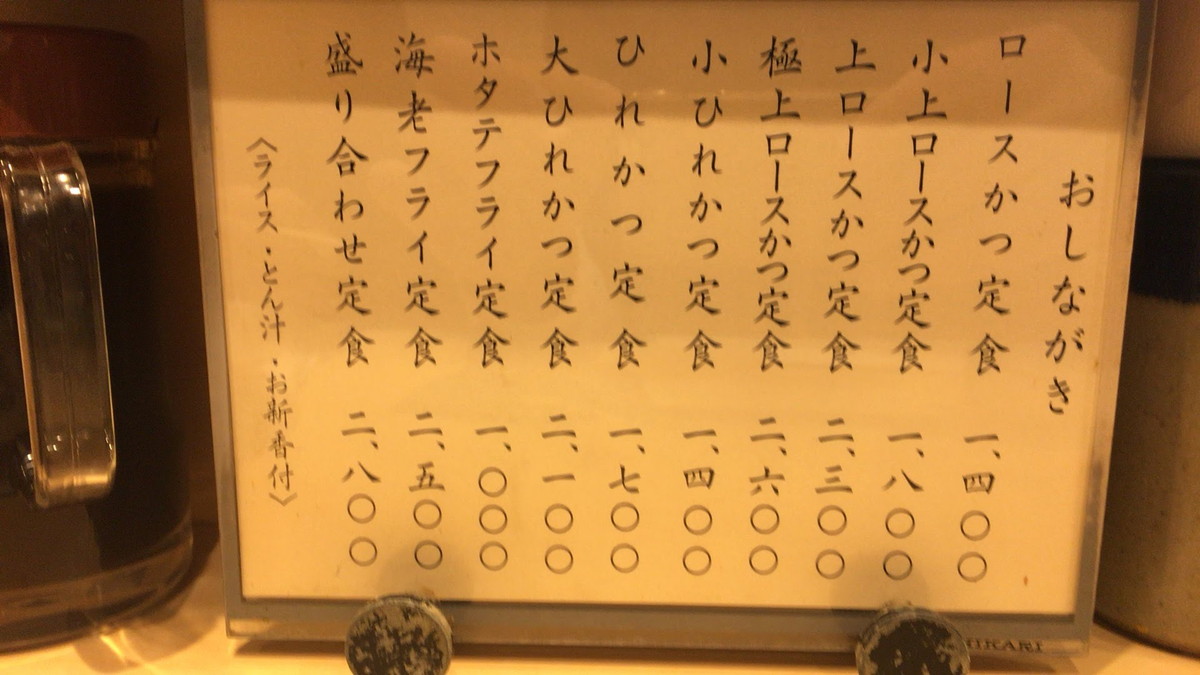 おしながき
ロースかつ定食 一、四〇〇
小上ロースかつ定食 一、八〇〇
上ロースかつ定食 二、三〇〇
極上ロースかつ定食 二、六〇〇
小ひれかつ定食 一、四〇〇
ひれかつ定食 一、七〇〇
大ひれかつ定食 二、一〇〇
ホタテフライ定食 一、〇〇〇
海老フライ定食 二、五〇〇
盛り合わせ定食 二、八〇〇
〈ライス・とん汁・お新香付〉
HIKARI